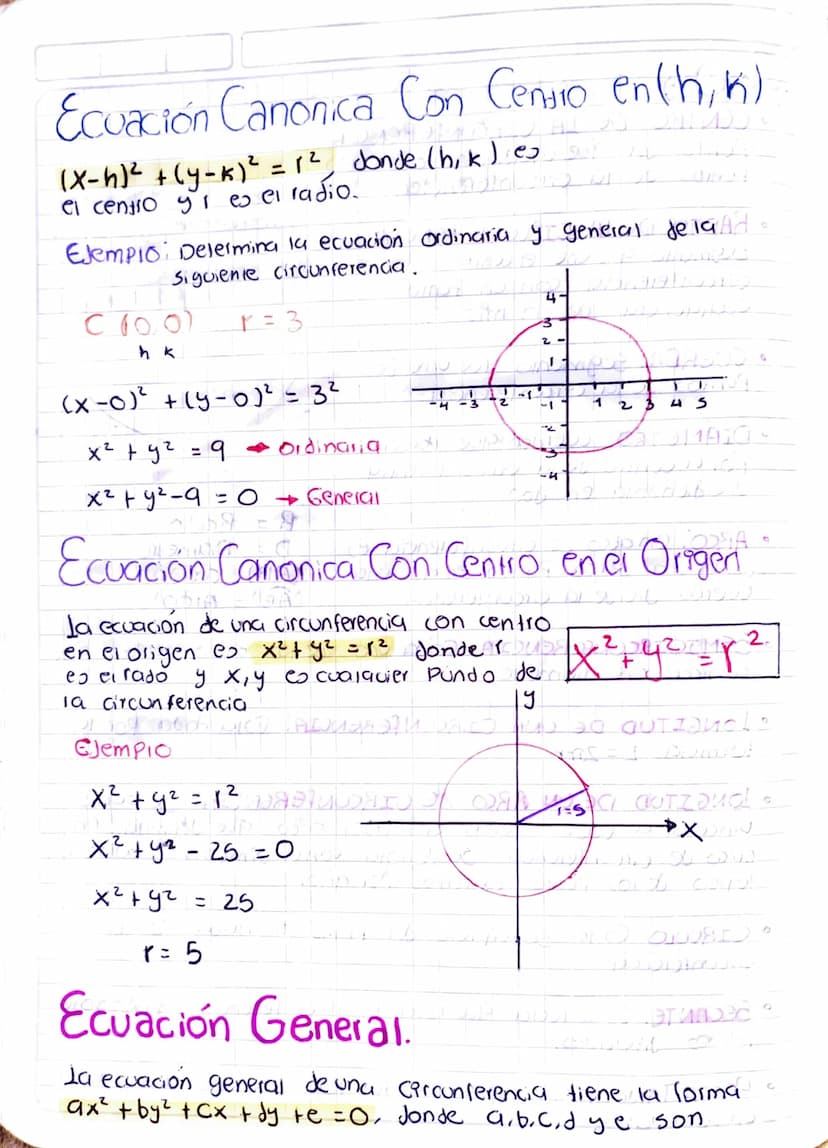 Ecuación Canonica Con Centro en (h, k)
(x-h)² + (y-k)² = r², donde (h, k) es
el centro y r es el radio.
Ejemplo: Determina la ecuación ordinaria y general de la
siguiente circunferencia.
C (0,0) r = 3
h k
(x-0)² + (y-0)² = 3²
x² + y² = 9 → Ordinaria
x² + y² - 9 = 0 → General
4
3
2
1
-4 -3 -2 -1 1 2 3 4 5
-1
-2
-3
-4
Ecuación Canonica Con Centro en el Origen
La ecuación de una circunferencia con centro
en el origen es x² + y² = r² donde r
es el rado y x, y es cualquier Pundo de
la circunferencia
x² + y² = r²
Ejemplo
x² + y² = r²
x² + y² - 25 = 0
x² + y² = 25
r = 5
y
r=5
x
Ecuación General.
La ecuación general de una circunferencia tiene la forma
ax² + by² + cx + dy + e = 0, donde a, b, c, d y e son